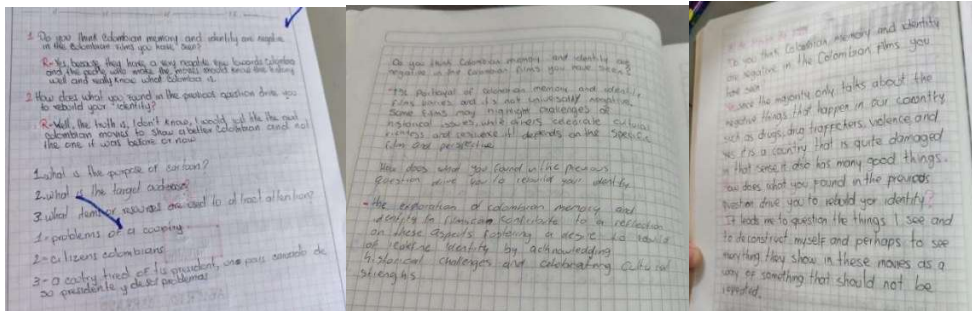 1 Do you think Colombian memory and identity are negative
in the Colombian films you have seen?
R- Yes, because they have a very negative view towards Colombia
and the people who make the movies should know the history
well and really know what Colombia is.
2 How does what you found in the previous question drive you
to rebuild your identity?
R- Well, the truth is, I don't know, I would like the new
Colombian movies to show a better Colombian and not
the one it was before or now
1. what is the purpose of cartoon?
2. what is the target audience?
3. what items or resources are used to attract attention?
1- problems of a country
2- citizens colombians
3- a country tired of its president, one pais
so presidente y de sus problemas
Do you think Colombian memory and identity are
negative in the Colombian films you have seen?
The Portrayal of Colombian memory and identity
films varies and it's not universally negative.
Some films may highlight challenges or
historical issues, while others celebrate cultural
richness and resilience it depends on the specific
film and perspective
How does what you found in the previous
question drive you to rebuild your identity
- the exploration of colombian memory and
identity in films can contribute to a reflection
on these aspects fostering a desire to rebuild
or redefine identity by acknowledging
historical challenges and celebrating cultural
strengths
Do you think Colombian memory and identity
are negative in the Colombian films you
have seen
since the majority only talks about the
negative things that happen in our country
such as drugs, drug traffickers, violence and
yes it is a country that is quite damaged
in that sense, it also has many good things.
how does what you found in the previous
question drive you to rebuild your identity?
It leads me to question the things I see and
to deconstruct myself and perhaps to see
everything they show in these movies as a
way of something that should not be
repeated.